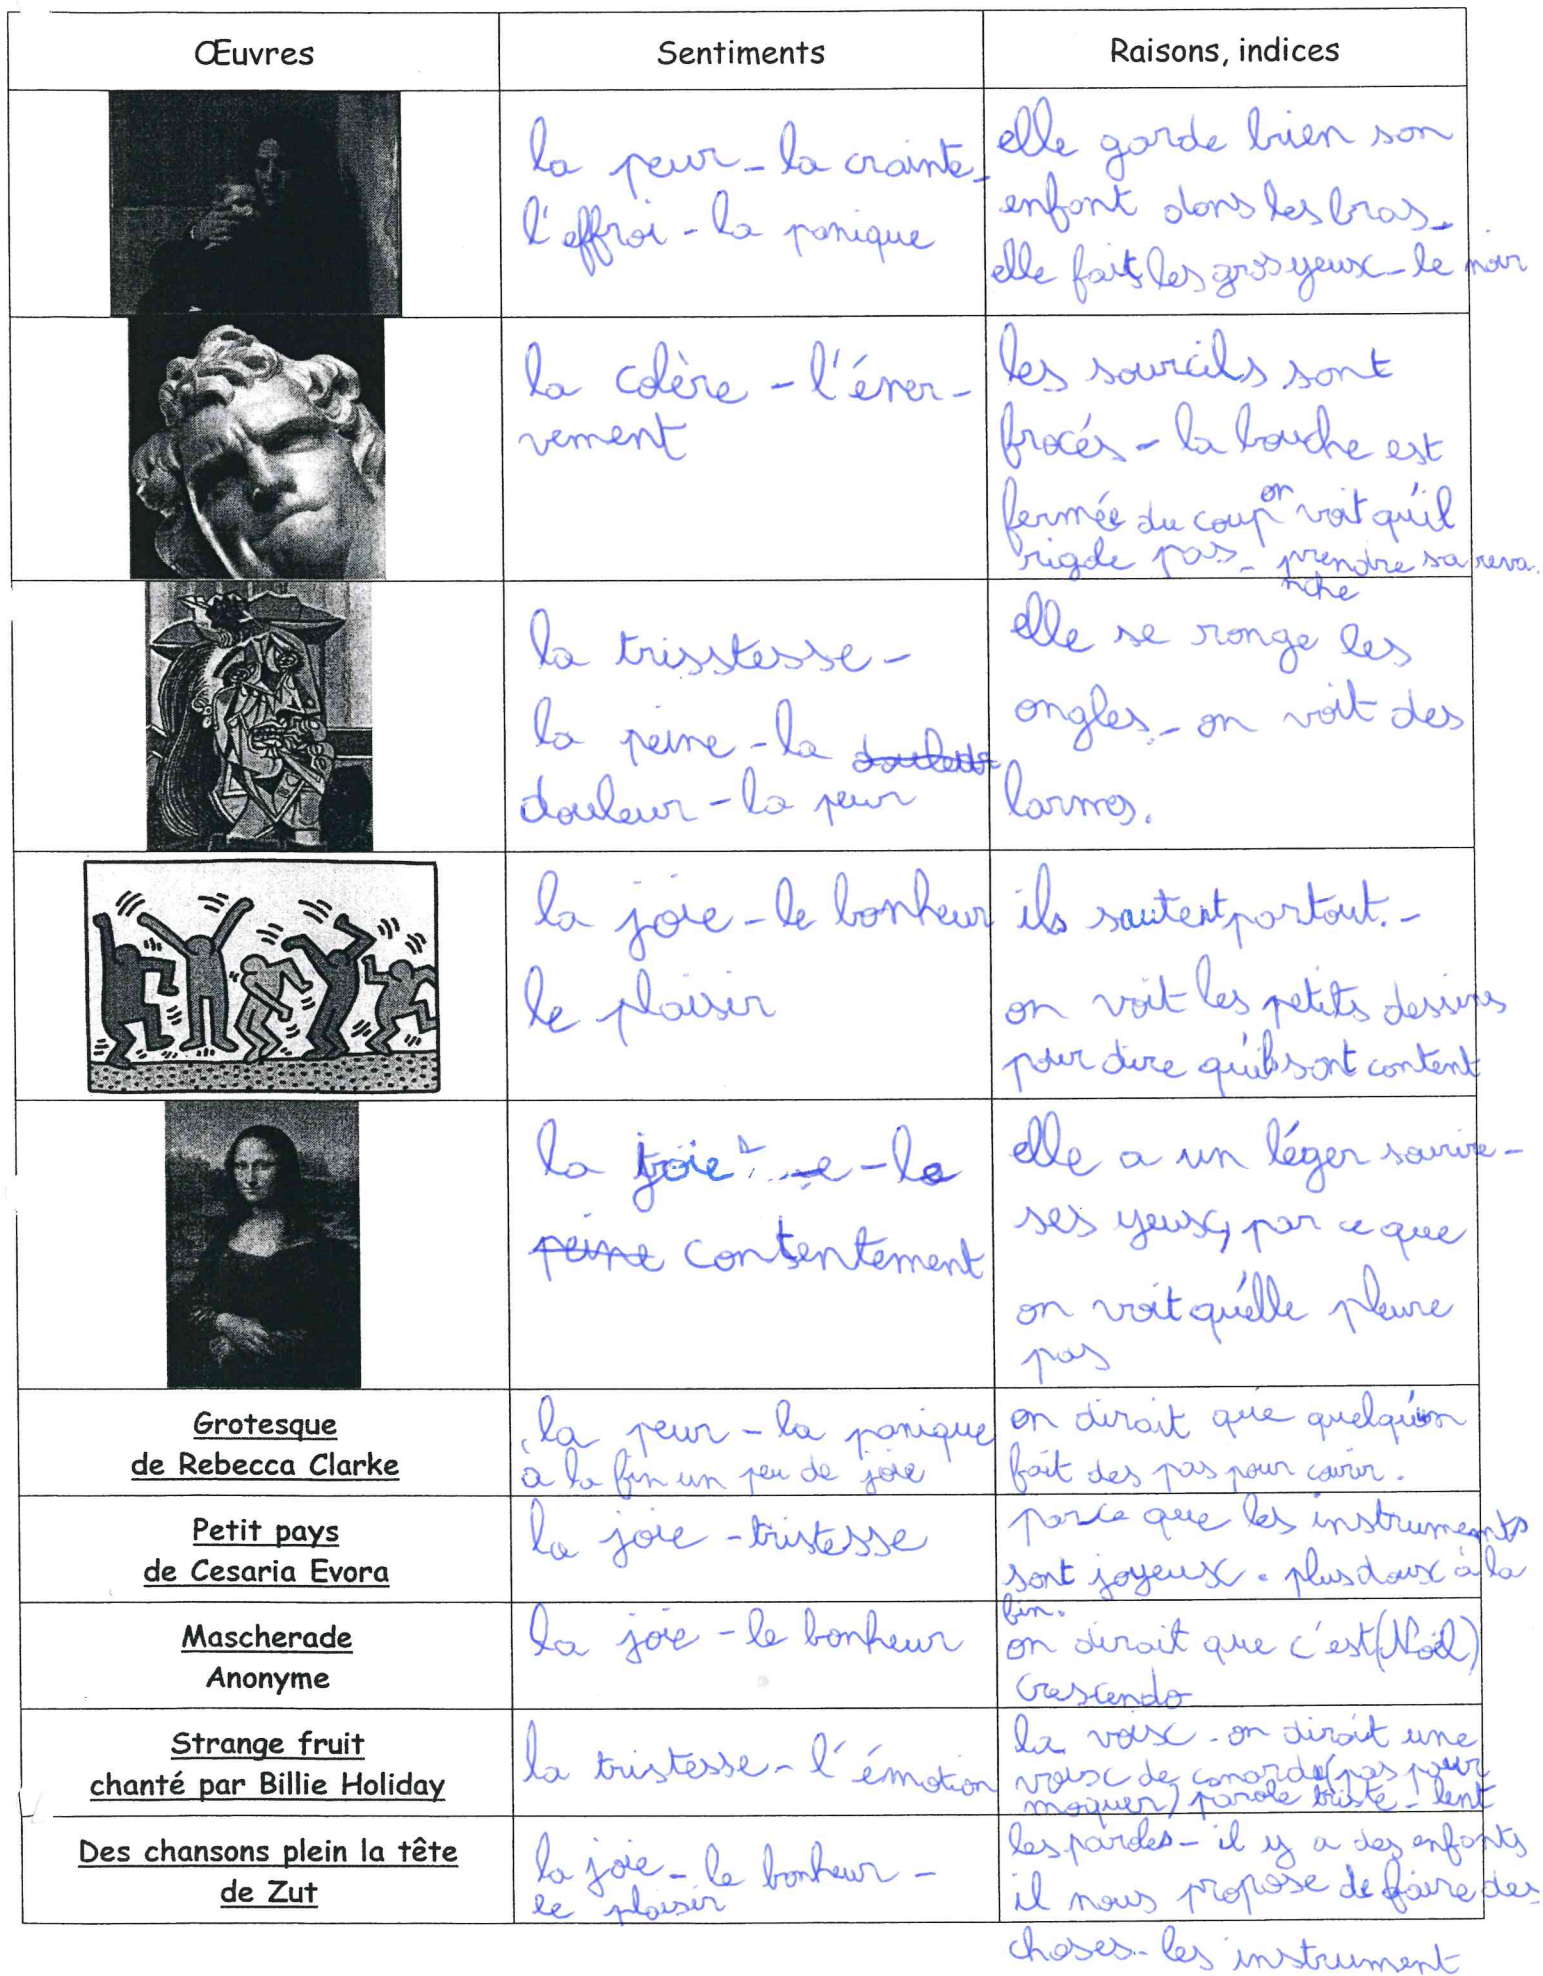 Œuvres
Sentiments
Raisons, indices
la peur - la crainte -
l'effroi - la panique
elle garde bien son
enfant dans les bras -
elle fait les gros yeux - le noir
la colère - l'éner-
vement
les sourcils sont
frocés - la bouche est
fermée du coup on voit qu'il
rigole pas - prendre sa reva
nche
la trisstesse -
la peine - la
douleur - la peur
elle se ronge les
ongles - on voit des
larmes.
la joie - le bonheur
le plaisir
ils sautent partout. -
on voit les petits dessins
pour dire qu'ils sont content
la joie - le
peine contentement
elle a un léger sourire -
ses yeux, par ce que
on voit qu'elle pleure
pas
Grotesque
de Rebecca Clarke
la peur - la panique
à la fin un peu de joie
on dirait que quelqu'un
fait des pas pour courir.
Petit pays
de Cesaria Evora
la joie - tristesse
parce que les instruments
sont joyeux. plus doux à la
fin.
Mascherade
Anonyme
la joie - le bonheur
on dirait que c'est (Noël)
Crescendo
Strange fruit
chanté par Billie Holiday
la tristesse - l'émotion
la voix - on dirait une
voix de canard (pas pour
moquer) parole triste - lent
Des chansons plein la tête
de Zut
la joie - le bonheur -
le plaisir
les paroles - il y a des enfants
il nous propose de faire des
choses - les instrument